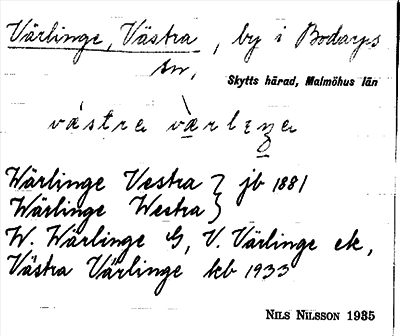 Värlinge, Västra, by i Bodarps
sn,
Skytts härad, Malmöhus län
Wärlinge Vestra } jb 1881
Wärlinge Westra }
W. Wärlinge G, V. Värlinge ek,
Västra Värlinge kb 1933
NILS NILSSON 1935